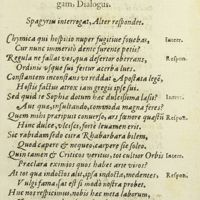 gam, Dialogus.
Spagyrus interrogat, Alter respondet.
Chymica qui hospitio nuper fugitiue fouebas, Interr.
Cur nunc immeriti dente furente petis?
Regula ne fallat vos, qua defertor oberrans, Respon.
Ordinis vsque sui fertur acerba lues.
Constantem inconstans vt reddat Apostata legē,
Hostis factus atrox gaudet in ipsius
Sed quid te Sophia datum hec dulcissima læsit? Interr.
Aut qua, insultando, commoda magna feres?
Quem mihi præripuit conuersio, ars fœnere quæstū Respon.
Hinc dulce, velles, ferit leuamen erit.
Sic rabidam sede cura Rhabarbara bilem,
Quod capere & nequeo, carpere sic soleo.
Qui tamen & Criticos veritus, tot cultor Orbis Interr.
Præclara eximios quot habet arte viros?
At tot qua indoctos alit, ipsa indocta, medentes, Respon.
Vulgi fama, sat est si modo nostra probet.
Huc nos respicimus, nobis hac meta laborum,